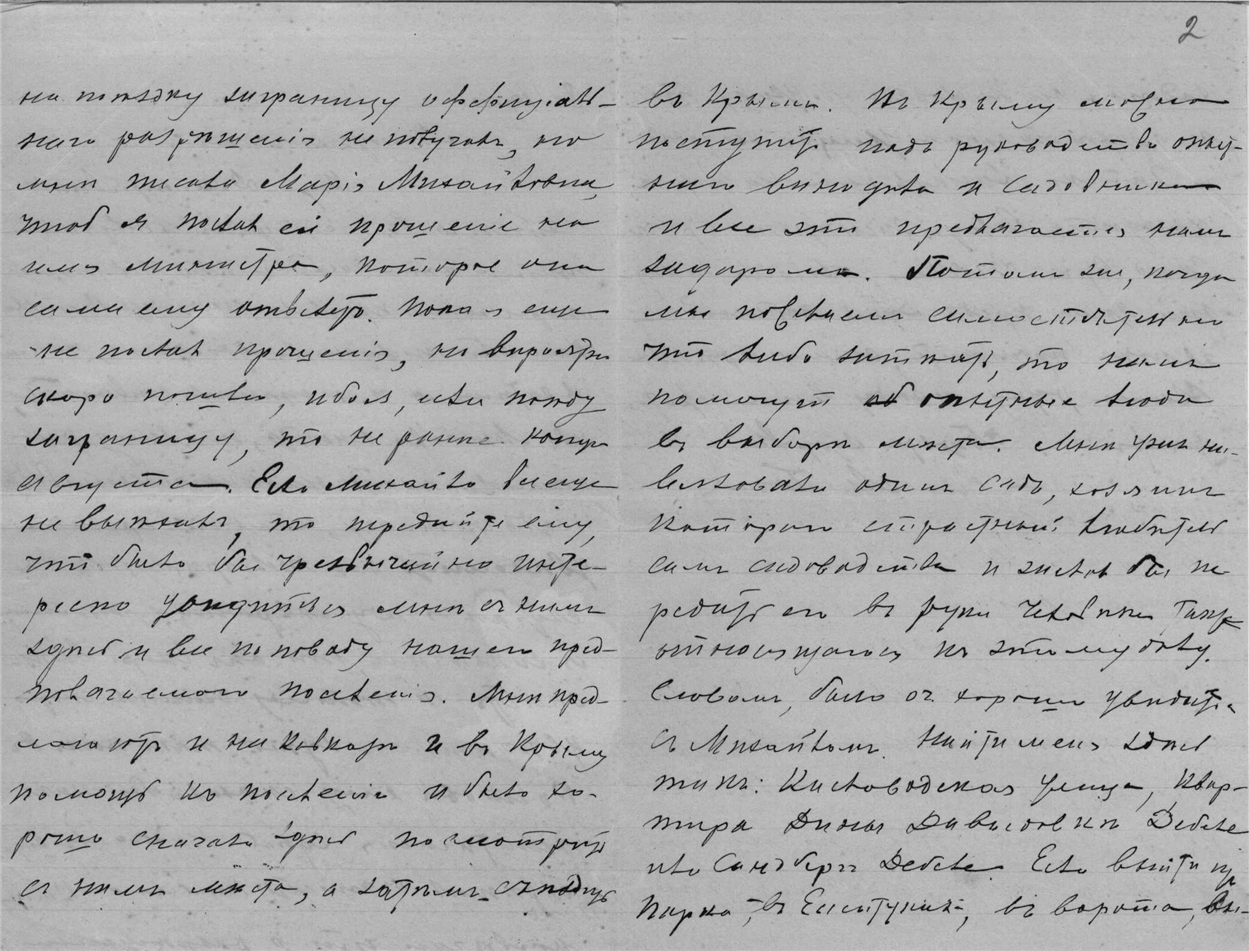 2
на поѣздку заграницу оффиціаль-
наго разрѣшенія не получалъ, но
мнѣ писала Марія Михайловна,
чтоб я послал ей прошеніе на
имя министра, которое она
сама ему отвезетъ. Пока я еще
не послал прошенія, но вѣроятно
скоро пошлю, ибо я, если поѣду
заграницу, то не ранѣе конца
Августа. Если Михайло еще
не выѣхалъ, то передайте ему,
что было бы чрезвычайно инте-
ресно увидѣться мнѣ с ним
здѣсь и все по поводу нашего пред-
полагаемаго поселенія. Мнѣ пред-
лагаютъ и на Кавказѣ и въ Крыму
помощь къ поселенію и было хо-
рошо сначала здѣсь посмотрѣть
съ нимъ мѣста, а затѣмъ съѣздить
въ Крымъ. Въ Крыму можно
поступить подъ руководство опыт-
наго винодѣла и садовника
и все это предлагается намъ
задаромъ. Потомъ же, когда
мы пожелаем самостоятельно
что либо затѣять, то намъ
помогут опытные люди
въ выборѣ мѣста. Мнѣ уже
одинъ садъ, хозяинъ
котораго страстный любитель
самъ садоводства и желал бы пе-
редать его въ руки человѣка такъ же
относящагося къ этому дѣлу.
Словомъ, было б хорошо увидѣться
съ Михайломъ. Найти меня здѣсь
такъ: Кисловодская улица, квар-
тира Дины Давыдовны
Если выйти из
парка, въ Ессентуках, въ ворота,